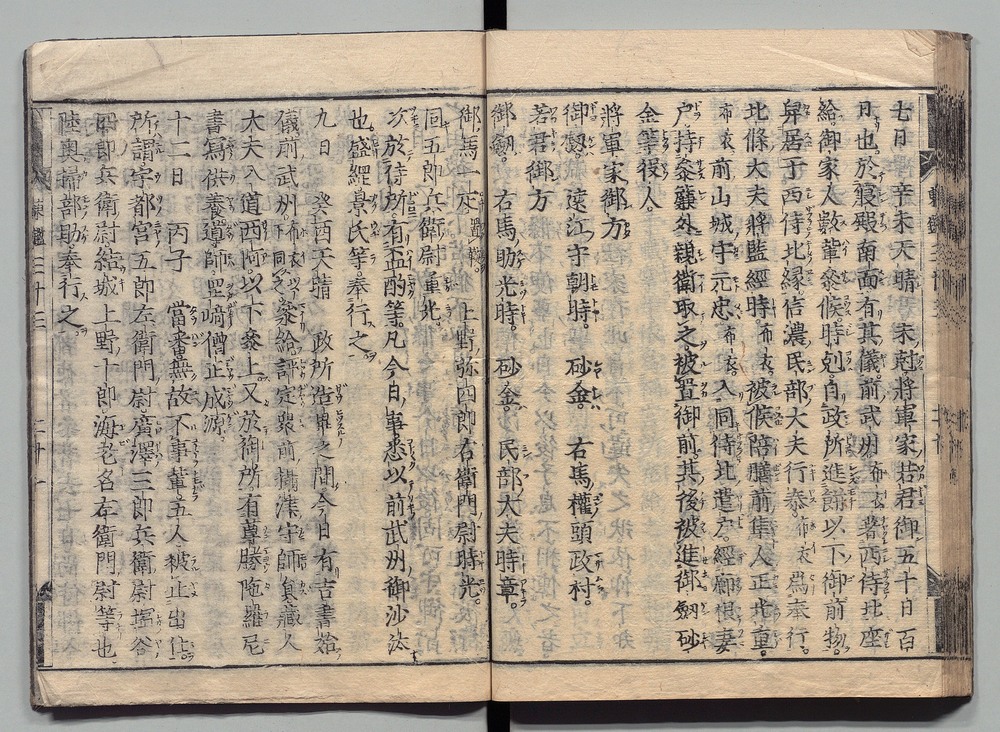 七日 辛未天晴 未尅將軍家若君御五十日百
日也於寢殿南面有其儀前武州布衣著西侍北座
給御家人數輩參候時剋自政所進餅以下御前物
舁居于西侍北緣信濃民部大夫行泰布衣爲奉行
北條大夫將監經時布衣被候陪膳前隼人正光重
布衣前山城守元忠布衣入同侍北遣戶經廊根妻
戶持參簾外親衛取之被置御前其後被進御劔砂
金等役人
將軍家御方
御劔遠江守朝時 砂金 右馬權頭政村
若君御方
御劔 右馬助光時 砂金 民部大夫時章
御馬一疋置鞍 上野弥四郎右衛門尉時光
同五郎兵衛尉重光
次於侍所有盃酌等凡今日事悉以前武州御沙汰
也盛經景氏等奉行之
九日 癸酉天晴 政所造畢之間今日有吉書始
儀前武州布衣以下同之參給評定衆前攝津守師員藏人
大夫入道西阿以下參上又於御所有尊勝陁羅尼
書寫供養導師聖僧正成源
十二日 丙子 當番無故不事輩五人被止出仕
所謂宇都宮五郎左衛門尉廣澤三郎兵衛尉塩谷
四郎兵衛尉結城上野十郎海老名左衛門尉等也
陸奧掃部助奉行之